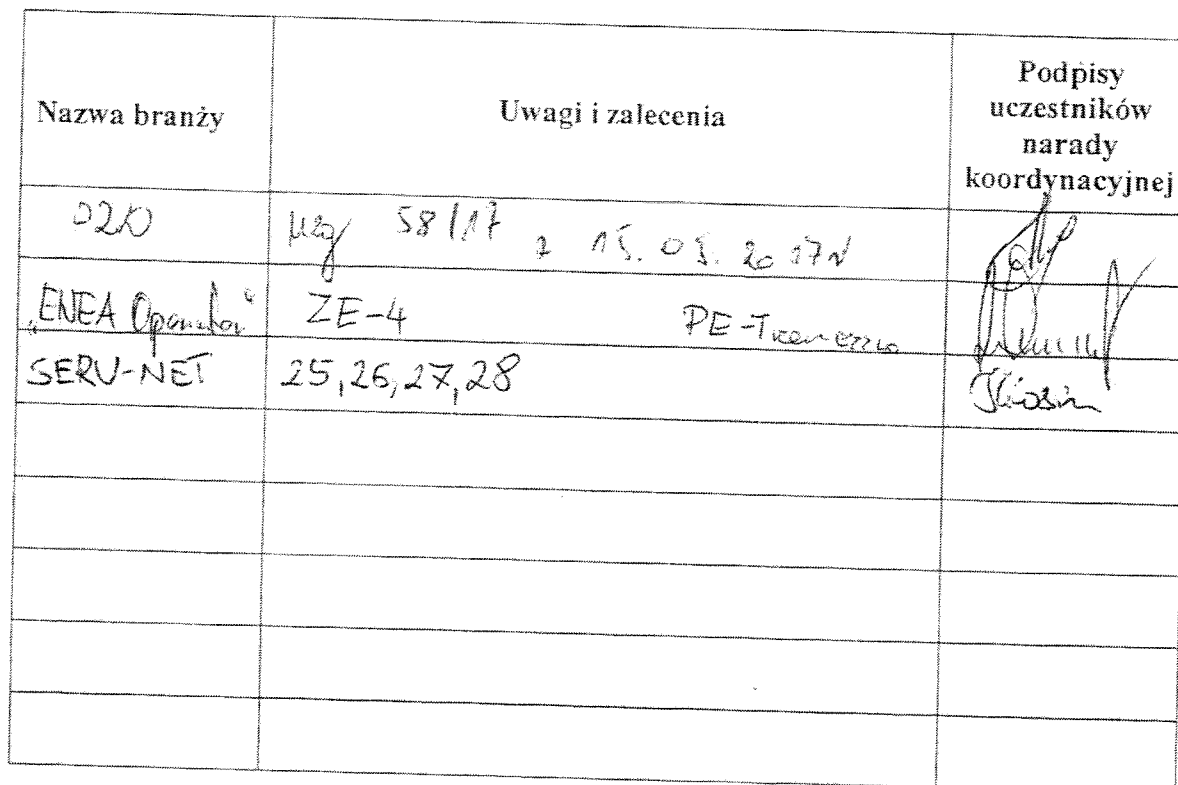 Nazwa branży
Uwagi i zalecenia
Podpisy
uczestników
narady
koordynacyjnej
uzg 58/17 z 15.05.2017r
„ENEA Operator" ZE-4 PE-Trzemeszno
SERV-NET 25,26,27,28